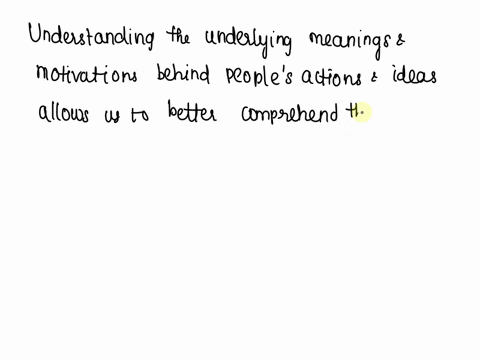 Understanding the underlying meanings &
motivations behind people's actions & ideas
allows us to better comprehend th